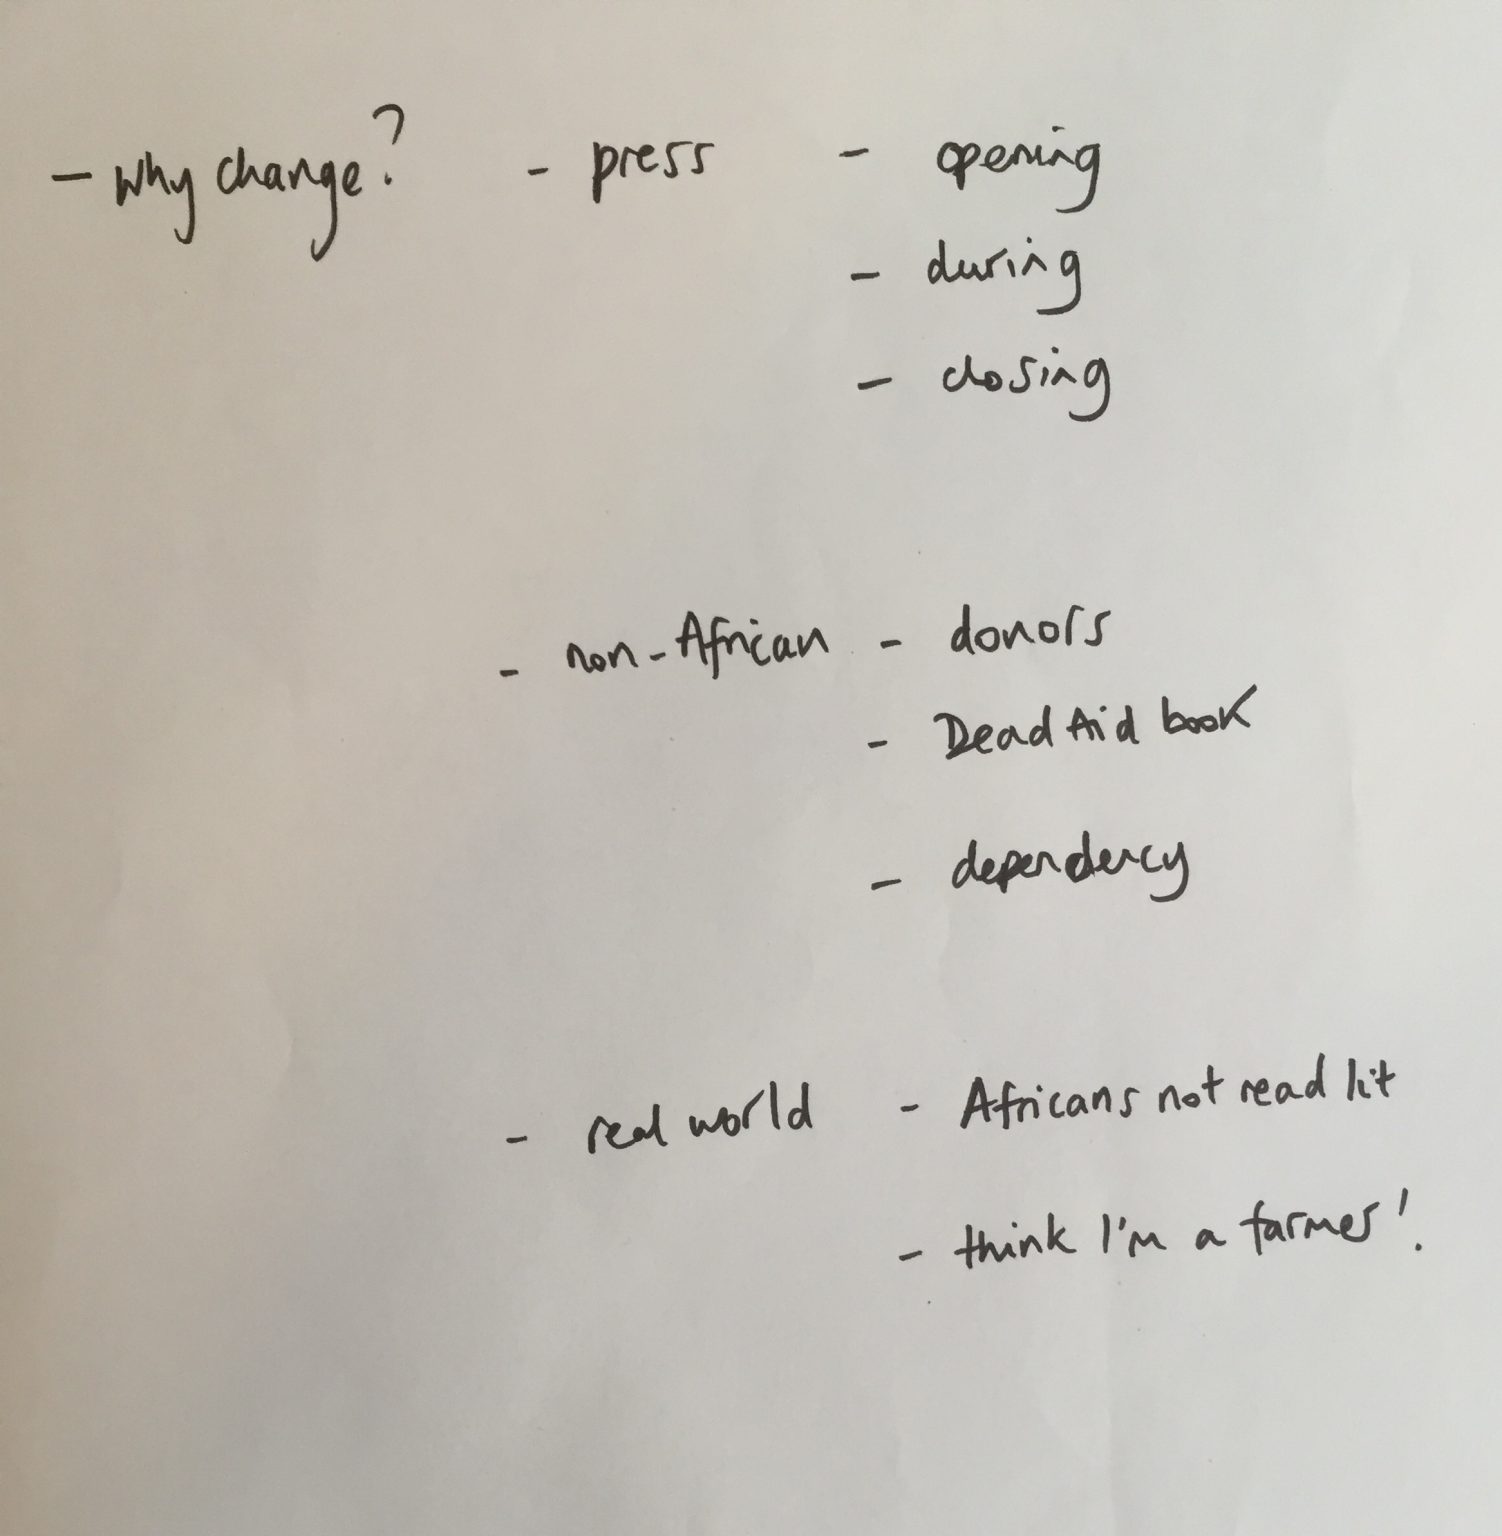 - Why change? - press - opening
- during
- closing
- non-African - donors
- Dead Aid book
- dependency
- real world - Africans not read lit
- think I'm a farmer!